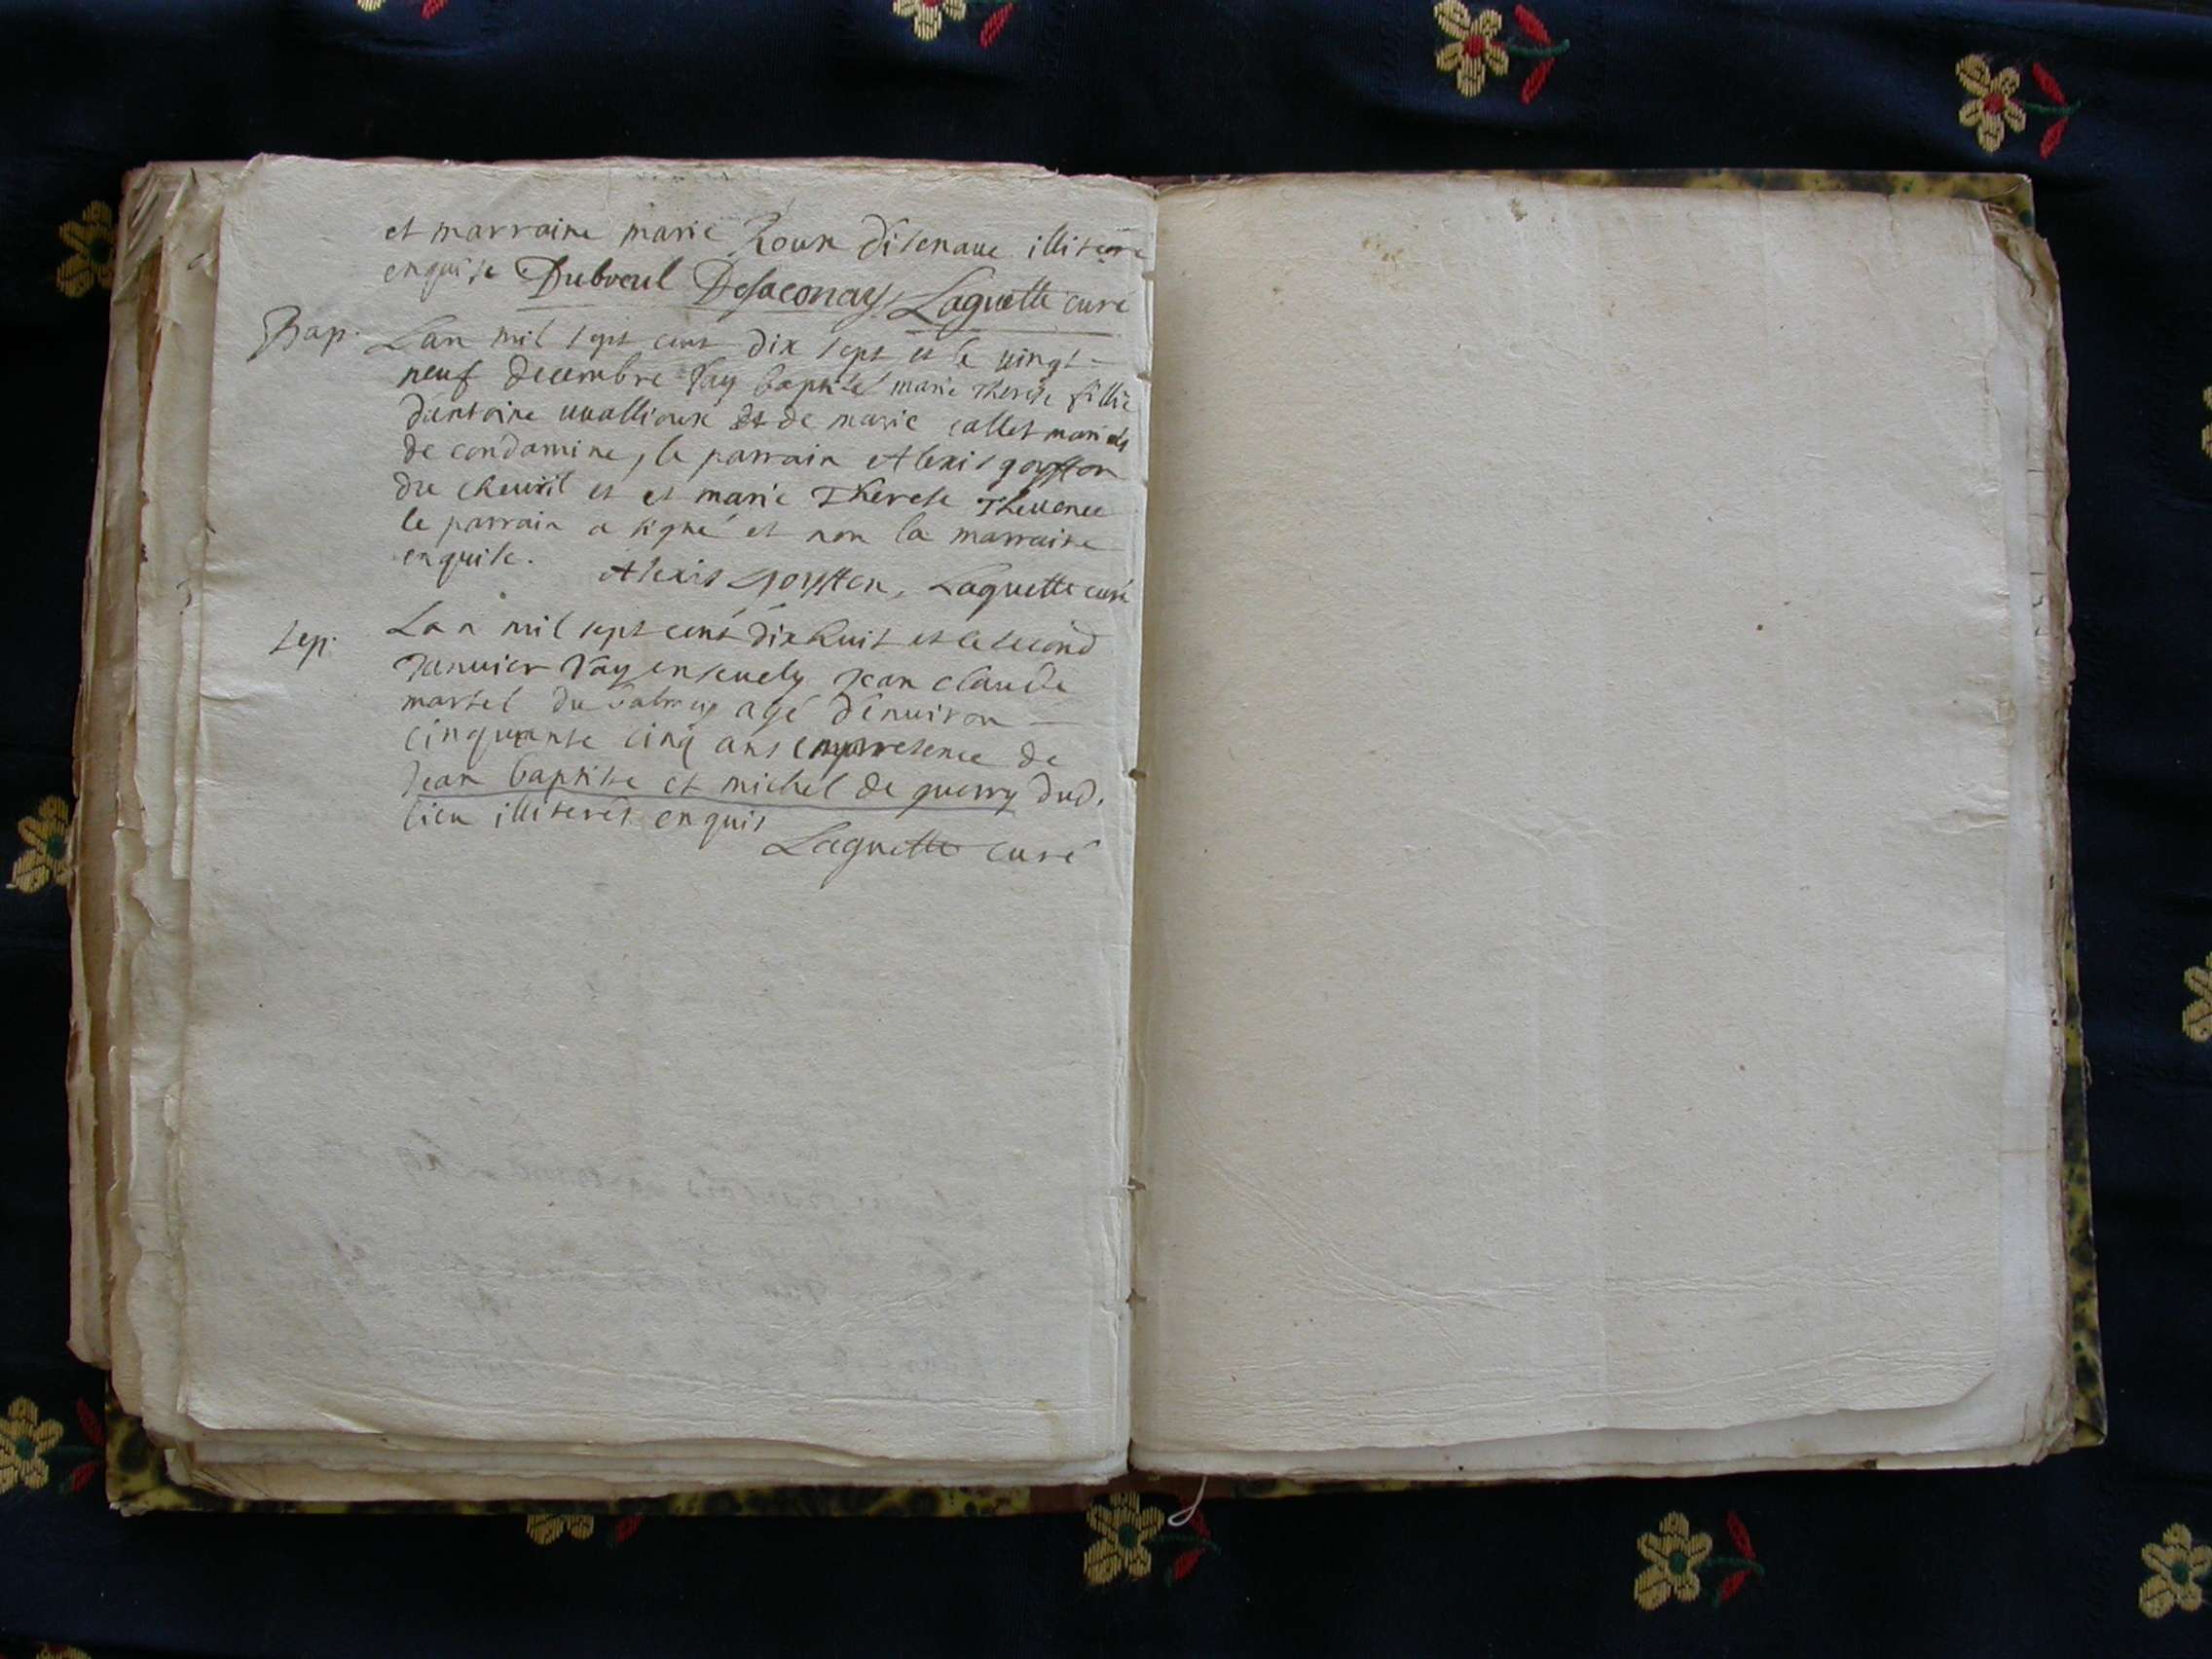 et marraine marie Roux illiterre
enquise Dubreul Desaconay, Laguette curé
Bap. Lan mil sept cent dix sept et le vingt-
neuf decembre Jay baptisé marie Therese fillie
dantoine uuallioux et de marie callet mariés
de condamine, le parrain Alexis goyffon
du cheuril et et marie Therese Theuenee
le parrain a signé et non la marraine
enquise. Alexis goyffon, Laguette curé
Sep. Lan mil sept cent dix huit et le second
Januier Jay enseuely Jean Claude
martel du agé denuiron
cinquante cinq ans en presence de
Jean baptiste et michel de guerry dud.
lieu illiterés enquis
Laguette curé